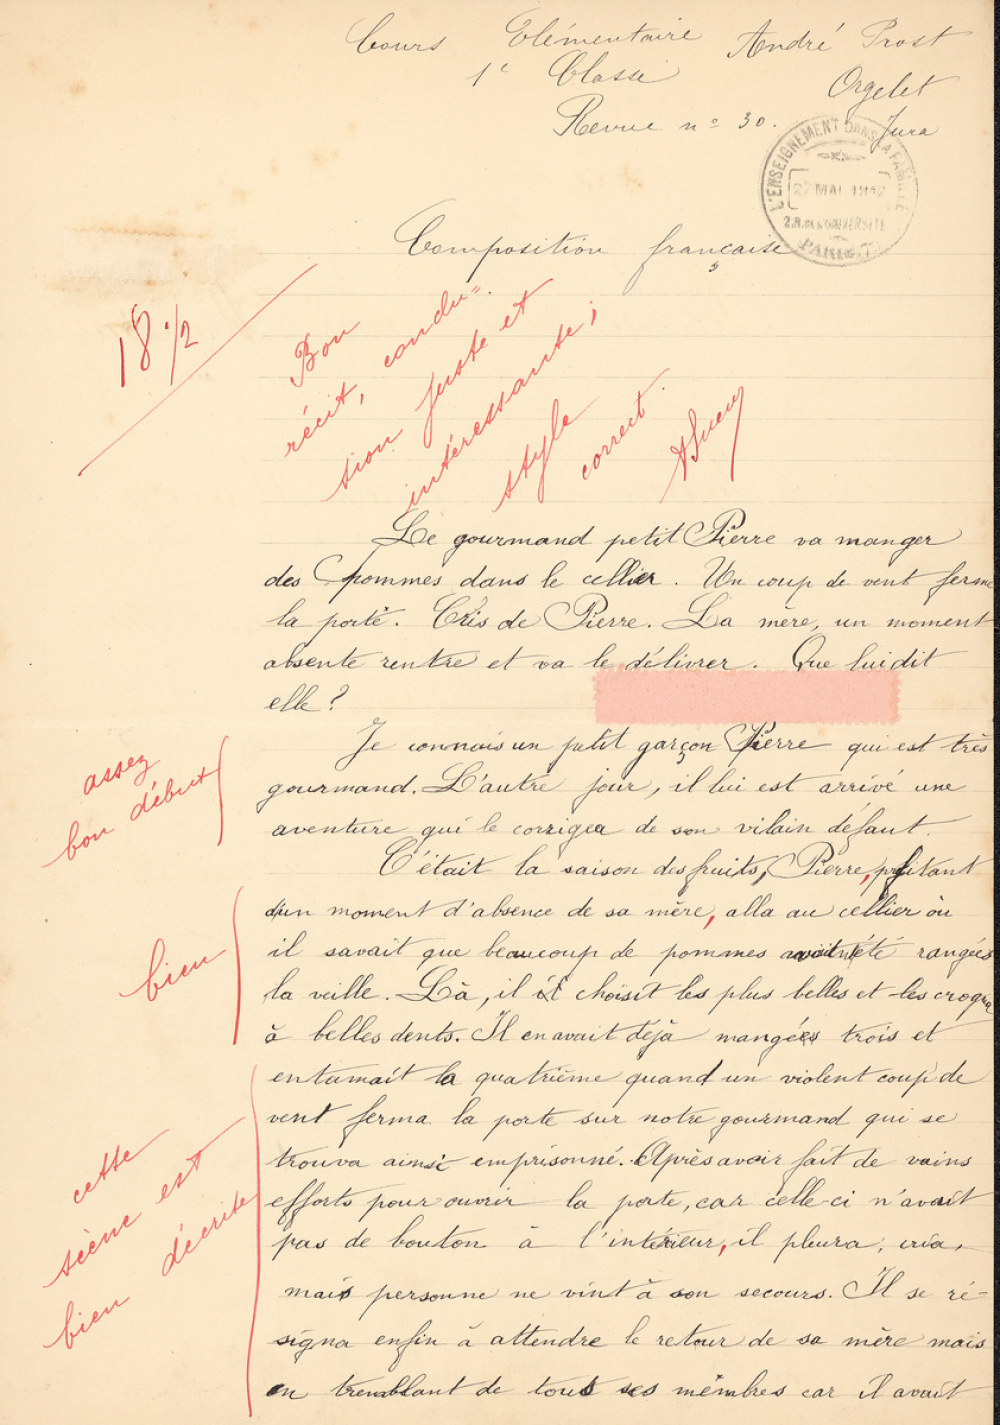 Cours Elémentaire André Prost
1e Classe Orgelet
Revue n° 30. Jura
L'ENSEIGNEMENT DANS LA FAMILLE
27 MAI
2. R. DE L'UNIVERSITÉ
PARIS
Composition française
18 1/2
Bon
récit, condu=
sion juste et
intéressante;
style
correct.
Le gourmand petit Pierre va manger
des pommes dans le cellier. Un coup de vent ferme
la porte. Cris de Pierre. La mère, un moment
absente rentre et va le délivrer. Que lui dit
elle?
assez
bon début
Je connais un petit garçon Pierre qui est très
gourmand. L'autre jour, il lui est arrivé une
aventure qui le corrigea de son vilain défaut.
C'était la saison des fruits, Pierre, profitant
d'un moment d'absence de sa mère, alla au cellier où
bien
il savait que beaucoup de pommes avaient été rangées
la veille. Là, il choisit les plus belles et les croqua
à belles dents. Il en avait déjà mangées trois et
entamait la quatrième quand un violent coup de
vent ferma la porte sur notre gourmand qui se
cette
scène est
bien décrite
trouva ainsi emprisonné. Après avoir fait de vains
efforts pour ouvrir la porte, car celle-ci n'avait
pas de bouton à l'intérieur, il pleura, cria,
mais personne ne vint à son secours. Il se ré-
signa enfin à attendre le retour de sa mère mais
en tremblant de tous ses membres car il avait